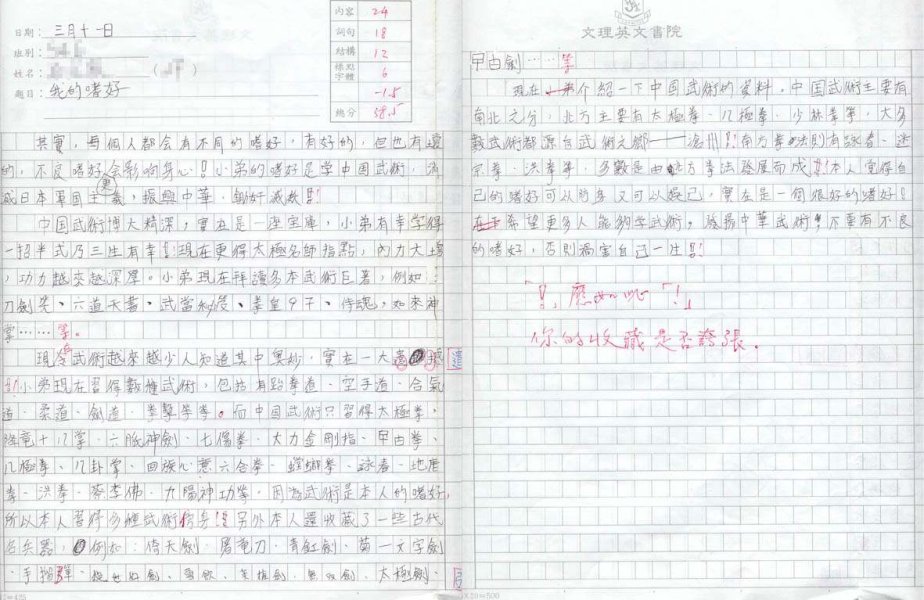 日期:三月十一日
班別:
姓名:
題目:我的嗜好
內容 24
詞句 18
結構 12
標點字體 6
-1.5
總分 58.5
其實,每個人都会有不同的嗜好,有好的,但也有壞
的,不良嗜好会影响身心!小弟的嗜好是学中国武術,消
滅日本軍国主義,振興中華,鋤奸滅敵!!
中国武術博大精深,實在是一座宝庫,小弟有幸学得
一招半式乃三生有幸!!現在更得太極名師指點,內力大增
,功力越來越深厚。小弟現在拜讀多本武術巨著,例如:
刀劍笑、六道天書、武當 、拳皇97、侍魂,如來神
掌……等。
現今武術越來越少人知道其中奧妙,實在一大遺憾 遺
!!小弟現在習得數種武術,包括有跆拳道、空手道、合氣
道、柔道、劍道、拳擊等等。而中国武術只習得太極拳、
降竜十八掌、六脈神劍、七傷拳、大力金剛指、早由拳、
八極拳、八卦掌、回族心意六合拳、螳螂拳、詠春、地歷
拳、洪拳、蔡李佛、九陽神功等,因為武術是本人的嗜好,
所以本人習得多種武術 身!!另外本人還收藏了一些古代
名兵器,例如:倚天劍、屠竜刀、青釭劍、莫一文字劍
、手榴彈、 劍、雪飲、 劍、無双劍、太極劍、
文理英文書院
早由劍……等
現在介紹一下中国武術的資料,中国武術主要有
南北之分,北方主要有太極拳、八極拳、少林拳等,大多
數武術都源自武術之鄉——滄州!!南方拳法則有詠春、迷
宗拳、洪拳等,多數是由 方拳法發展而成!!本人覺得自
己的嗜好可以防身又可以娛己,實在是一個很好的嗜好!
希望更多人能夠学武術,發揚中華武術,不要有不良
的嗜好,否則禍害自己一生!!
「!」應如此「!」
你的收藏是否誇張。
20=500